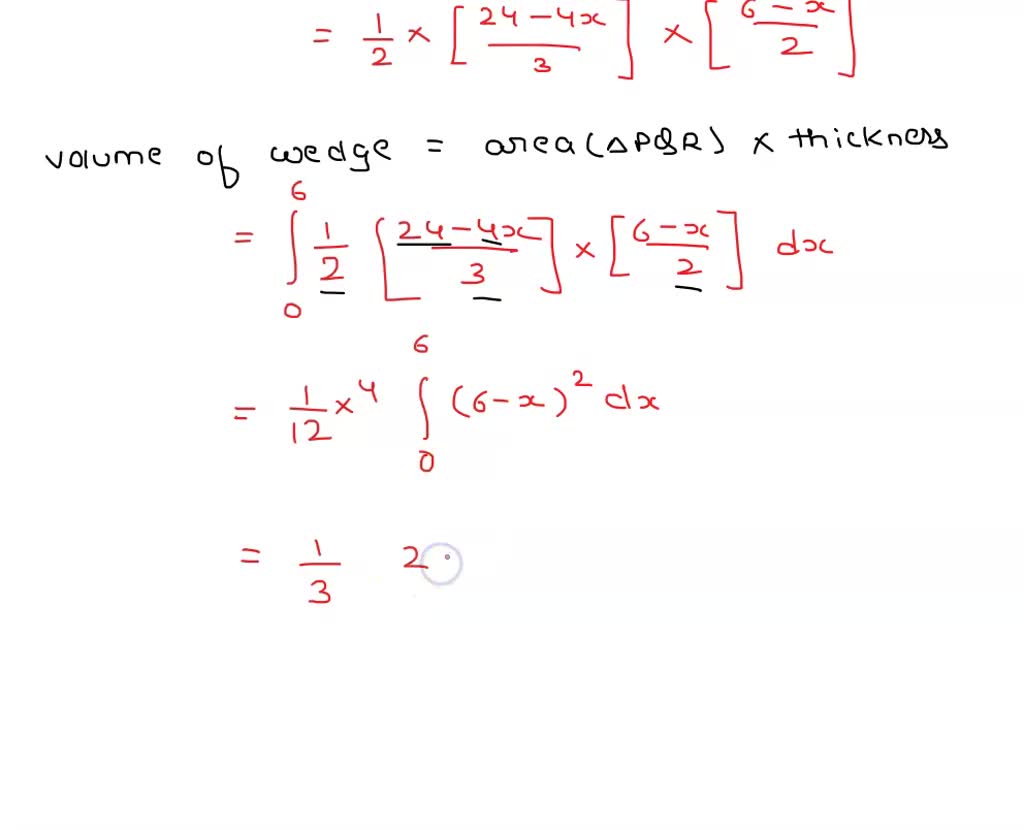 = 1/2 × [24-4x/3] × [6-x/2]
volume of wedge = area(△PQR) × thickness
= ∫₀⁶ 1/2 [24-4x/3] × [6-x/2] dx
= 1/12 × 4 ∫₀⁶ (6-x)² dx
= 1/3 2